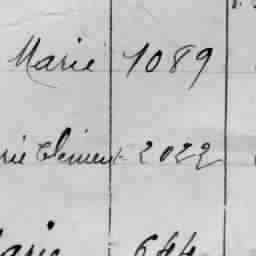 Marie 1089
rie Clement 2022
Marie 644